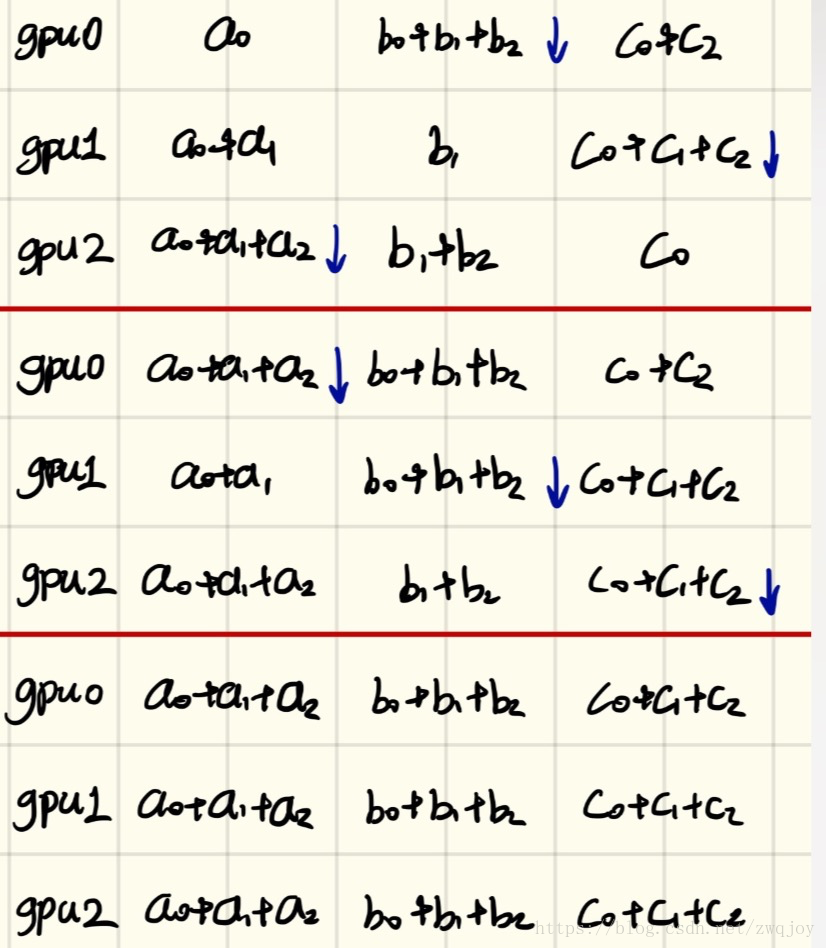 gpu0 a₀ b₀+b₁+b₂ ↓ C₀+C₂
gpu1 a₀+a₁ b₁ C₀+C₁+C₂ ↓
gpu2 a₀+a₁+a₂ ↓ b₁+b₂ C₀
gpu0 a₀+a₁+a₂ ↓ b₀+b₁+b₂ C₀+C₂
gpu1 a₀+a₁ b₀+b₁+b₂ ↓ C₀+C₁+C₂
gpu2 a₀+a₁+a₂ b₁+b₂ C₀+C₁+C₂ ↓
gpu0 a₀+a₁+a₂ b₀+b₁+b₂ C₀+C₁+C₂
gpu1 a₀+a₁+a₂ b₀+b₁+b₂ C₀+C₁+C₂
gpu2 a₀+a₁+a₂ b₀+b₁+b₂ C₀+C₁+C₂
https://blog.csdn.net/zwqjoy